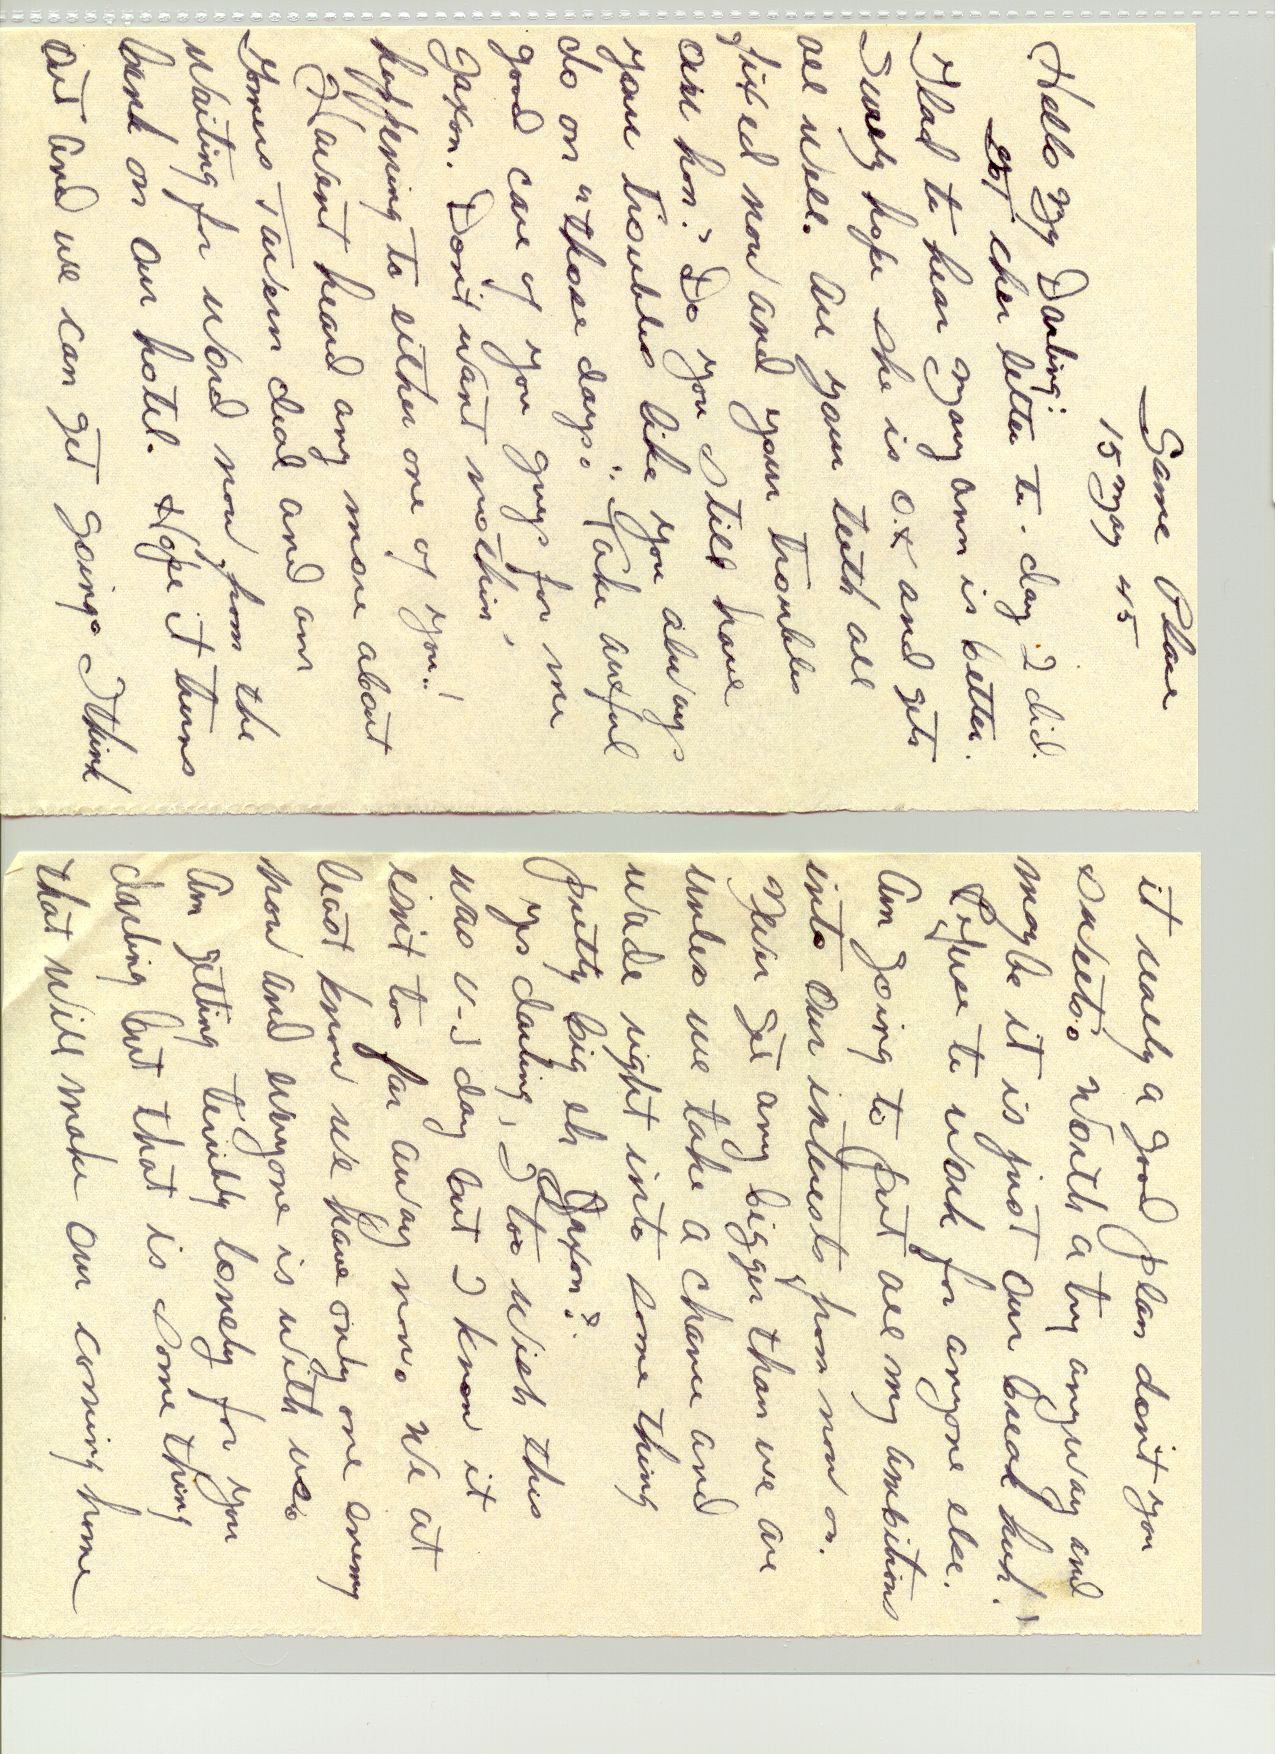 Same Place
15 May 45
Hello My Darling:
Got cher letter to-day I did.
Glad to hear Mary Ann is better.
Surely hope she is O.K and gets
all well. Are your teeth all
fixed now and your troubles
are hon? Do you still have
your troubles like you always
do on "those days." Take awful
good care of you guys for me
Jaxon. Don't want nothin'
happening to either one of you!
Haven't heard any more about
Tavern deal and am
waiting for word now from the
bank on our hotel. Hope it turns
out and we can get going. I think
it really a good plan don't you
sweets. Worth a try anyway and
maybe it is just our break huh!
Refuse to work for anyone else.
Am going to put all my ambitions
into our interests from now on.
Never get any bigger than we are
unless we take a chance and
wade right into some thing
pretty big eh Jaxon?
Yes darling, I too wish this
was V-J day but I know it
isn't too far away now. We at
least know we have only one enemy
now and everyone is with us.
Am getting terribly lonely for you
darling but that is some thing
that will make our coming home